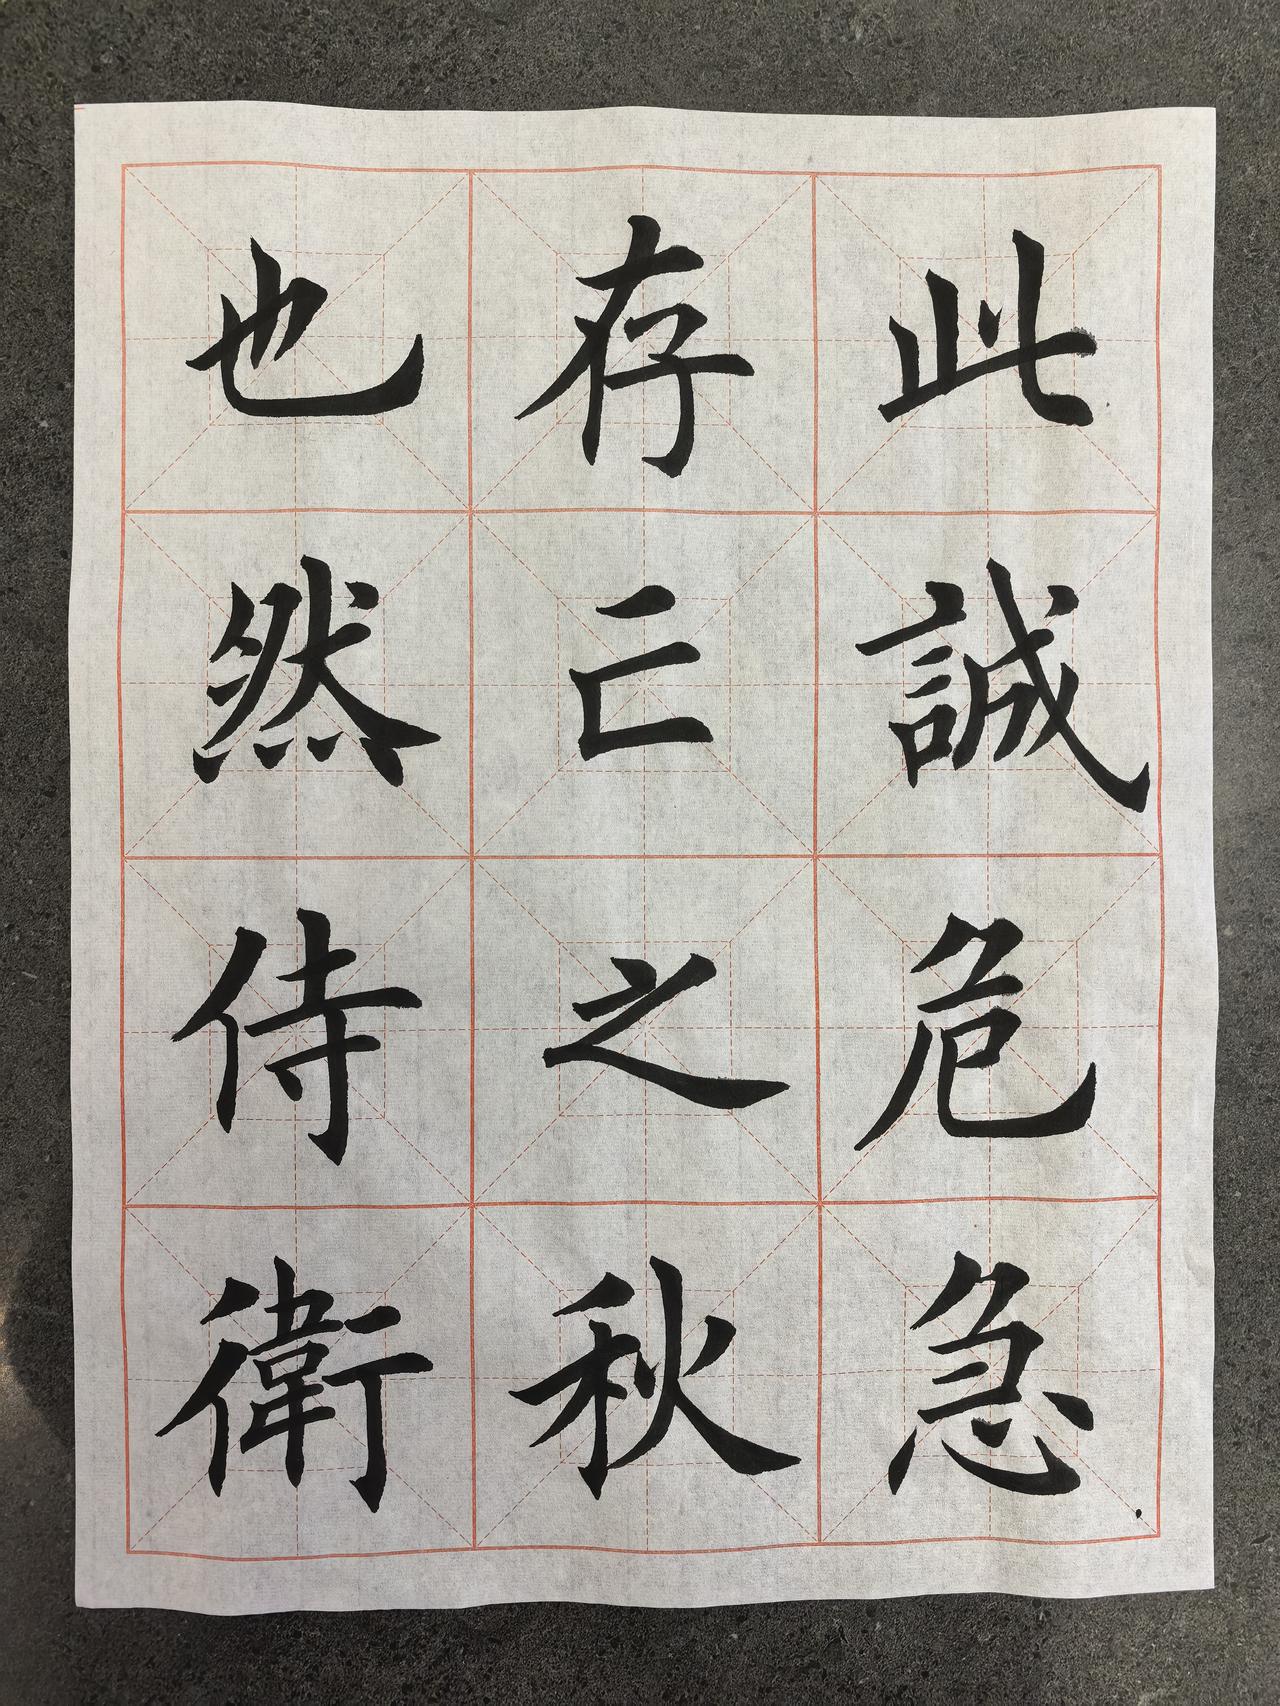 此誠危急
存亡之秋
也然侍衛